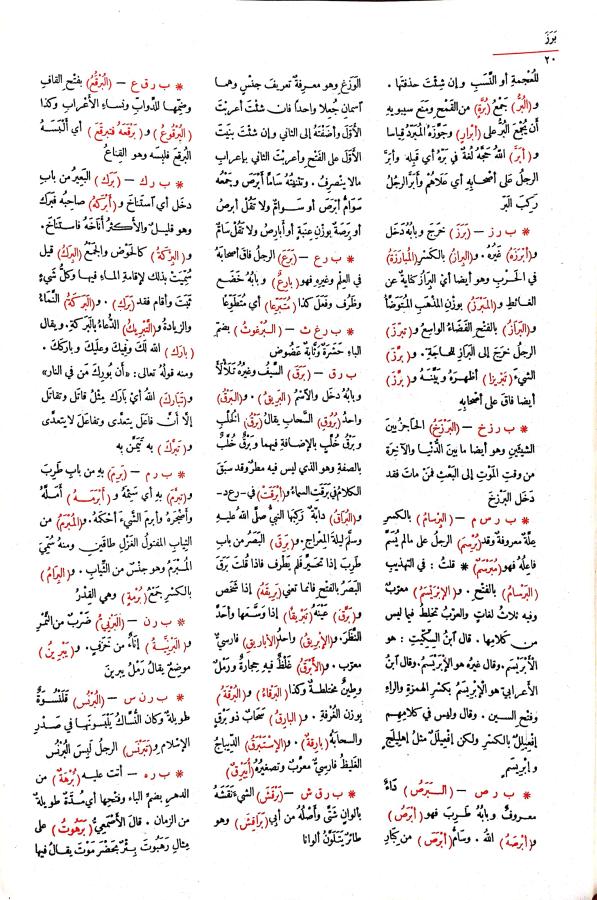 بَرَزَ
٢٠
للعُجمةِ أو النَّسَبِ وإن شِئتَ حذفتَها .
و(البُرُّ) جمْعُ (بُرَّةٍ) من القَمْحِ ومَنع سيبويهِ
أن يُجْمَعَ البُرُّ على (أبْرارٍ) وجَوَّزهُ المُبَرِّدُ قياسا
و (أبَرَّ) اللهُ حَجَّهُ لُغةٌ في بَرّهُ أي قَبِله . وأبَرَّ
الرجلُ على أصحابِهِ أي عَلاهُمْ وأبَرَّ الرجُلُ
رَكِبَ البَرّ
* ب ر ز – (بَرَزَ) خرَجَ وبابُهُ دَخَل
و(أبْرَزَهُ) غَيْرُه . و(البِرَازُ) بالكسْرِ (المُبارَزَةُ)
في الحَرْبِ وهو أيضا أيْ البِرَازُ كِنايةٌ عن
الغائط و(المَبْرَزُ) بوزْن المَذْهَبِ المُتَوَضَّأُ
و(البَرَازُ) بالفتح الفَضَاءُ الواسِعُ و(تبرّزَ)
الرجلُ خرَجَ إلى البَرَازِ للحاجةِ . و(برَّزَ)
الشيءَ (تبريزا) أظهرَهُ وبَيَّنَهُ و(برَّزَ)
أيضا فاقَ على أصْحابِهِ
* ب ر ز خ – (البَرْزَخُ) الحاجزُ بينَ
الشيئينِ وهو أيضا ما بينَ الدُّنْيا والآخِرَةِ
من وقتِ المَوْتِ إلى البَعْثِ فَمَنْ ماتَ فقد
دَخَل البَرْزَخَ
* ب ر س م – (البِرْسامُ) بالكسْرِ
عِلَّةٌ معروفةٌ وقد (بُرْسِمَ) الرجلُ على مالم يُسَمَّ
فاعِلُهُ فهو (مُبَرْسَمٌ) * قلتُ : في التهذيبِ
(البَرْسامُ) بالفتح . و(الإبْرَيْسَمُ) معرّبٌ
وفيه ثلاثُ لغاتٍ والعرَبُ تَخْلِطُ فيما ليسَ
من كلامِها . قال ابنُ السِّكِّيتِ : هو
الإبْرِيسَمُ . وقال غيرُه هو الإبْرَيْسَمُ . وقال ابنُ
الأعرابيِّ هو الإبْرِيسَمُ بكسْرِ الهمزةِ والراءِ
وفتْحِ السين . وقال وليسَ في كلامِهِم
إفْعِيلِلٌ بالكسْرِ ولكن إفْعِيلَلٌ مثلُ إهلِيلَجٍ
وإبْرِيسَمٍ
* ب ر ص – (البَرَصُ) داءٌ
معروفٌ وبابُهُ طَرِبَ فهو (أبْرَصُ)
و(أبْرَصَهُ) اللهُ . وسامُّ (أبْرَصَ) من كِبارِ
الوَزَغِ وهو معرفةُ تعريفِ جنْسٍ وهما
آسمانِ جُعِلا واحدًا فإن شئتَ أعربْتَ
الأوّلَ وأضَفْتَهُ إلى الثاني وإن شئتَ بنَيْتَ
الأوّلَ على الفَتْحِ وأعربْتَ الثاني بإعرابِ
مالا ينصرفُ . وتثنيتُهُ سَامَّا أبْرَصَ وجَمْعُه
سَوَامُّ أبْرَصَ أو سَوَامُّ ولا تَقُلْ أبْرص
أو بِرَصَةٌ بوزْنِ عِنَبةٍ أو أبارِصُ ولا تَقُلْ سَامّ
* ب ر ع – (بَرَعَ) الرجلُ فاقَ أصحابَهُ
في العِلْمِ وغيرِهِ فهو (بارِعٌ) وبابُهُ خَضَع
وظَرُف وفعَلَ كذا (مُتَبَرِّعا) أي مُتَطَوِّعا
* ب ر غ ث – (البُرْغوثُ) بضمّ
الباءِ حَشَرَةٌ وَثَّابةٌ عَضُوض
* ب ر ق – (بَرَقَ) السَّيْفُ وغيرُهُ تَلَأْلَأَ
وبابُهُ دَخَل والاسْمُ (البَرِيقُ) . و(البَرْقُ)
واحدُ (بُرُوقِ) السَّحابِ يقالُ (بَرْقُ) الخُلَّبِ
و بَرْقُ خُلَّبٍ بالإضافةِ فيهما وبَرْقٌ خُلَّبٌ
بالصفةِ وهو الذي ليس فيه مطَرٌ وقد سبَقَ
الكلامُ في بَرَقَتِ السماءُ و(أبْرَقَتْ) في - رعد -
و(البُرَاقُ) دابّةٌ رَكِبَها النبيُّ صلَّى اللهُ عليهِ
وسلَّمَ ليلةَ المِعْراجِ . و(بَرِقَ) البَصَرُ من بابِ
طَرِبَ إذا تَحَيَّرَ فلم يَطْرِفْ فإذا قُلتَ بَرَقَ
البَصَرُ بالفتحِ فإنما تعني (بَرِيقَهُ) إذا شَخَصَ
و(بَرَّقَ) عَيْنَهُ (تَبْريقًا) إذا وَسَّعَها وأحَدَّ
النَّظَرَ . و(الإبْرِيقُ) واحدُ (الأبَارِيقِ) فارسيٌّ
معرّب . و(الأبْرَقُ) غِلَظٌ فيهِ حِجارةٌ ورَمْلٌ
وطِينٌ مختلطةٌ وكذا (البَرْقاءُ) و(البُرْقَةُ)
بوزن الغُرْفةِ . و(البارِقُ) سَحابٌ ذو بَرْقٍ
والسحابةُ (بارِقةٌ) . و(الإسْتَبْرَقُ) الدِّيباجُ
الغَلِيظُ فارسيٌّ معرّبٌ وتصغيرُهُ (أُبَيْرِقٌ)
* ب ر ق ش – (بَرْقَشَ) الشيءَ نقَّشَهُ
بألوانٍ شَتَّى وأصْلُه من أبي (بَراقِشَ) وهو
طائرٌ يَتَلَوَّنُ ألوانا
* ب ر ق ع – (البُرْقَعُ) بفتحِ القافِ
وضمِّها للدَّوابِّ ونساءِ الأعْرابِ وكذا
(البُرْقُوعُ) و(بَرْقَعَهُ فتبرقَعَ) أي ألبَسَهُ
البُرْقعَ فلبِسه وهو القِناعُ
* ب ر ك – (بَرَكَ) البعيرُ من بابِ
دخل أي آستناخ . و(أبْرَكَهُ) صاحبُهُ فَبَرَك
وهو قليلٌ . والأكثرُ أناخَهُ فاستناخ .
و(البِرْكَةُ) كالحَوْضِ والجمعُ (البِرَكُ) قيل
سُمِّيَتْ بذلك لإقامةِ الماءِ فيها وكلُّ شيءٍ
ثَبَتَ وأقام فقد (بَرَكَ) . و(البَرَكَةُ) النَّماءُ
والزيادةُ و(التَّبْرِيكُ) الدُّعاءُ بالبَرَكةِ . ويقال
(بارَك) اللهُ لَكَ وفِيكَ وعليك وبارَكَك .
ومنه قولُه تعالى: «أن بُورِكَ مَن في النارِ»
و(تَبارَكَ) اللهُ أيْ بارَكَ مِثلُ قاتَل وتقاتَل
إلّا أنَّ فاعَل يتعدَّى وتفاعَل لايتعدَّى
و(تَبَرَّكَ) به تَيَمَّنَ به
* ب ر م – (بَرِمَ) به من بابِ طَرِبَ
و(تَبَرَّمَ) به أي سَئِمَهُ و(أبْرَمَهُ) أمَلَّهُ
وأضْجَرَهُ وأبْرَم الشَّيءَ أحْكَمَهُ . و(المُبْرَمُ) من
الثيابِ المفتُولُ الغَزْلِ طاقَيْنِ ومنه سُمِّيَ
المُبْرَمُ وهو جنْسٌ من الثِّيابِ . و(البِرَامُ)
بالكسْرِ جَمْعُ (بُرْمةٍ) وهي القِدْرُ
* ب ر ن – (البَرْنِيُّ) ضَرْبٌ من التَّمْرِ
و(البَرْنِيَّةُ) إناءٌ من خَزَفٍ . و(يَبْرِينُ)
موضعٌ يقالُ رَمْلُ يبرينَ
* ب ر ن س – (البُرْنُس) قَلَنْسُوَةٌ
طويلةٌ وكان النُّسَّاكُ يَلْبَسونَها في صَدْرِ
الإسلامِ و(تَبَرْنَسَ) الرجلُ لَبِسَ البُرْنُسَ
* ب ر ه – أتت عليه (بُرْهَةٌ) من
الدهرِ بضمِّ الباءِ وفتحِها أي مُدَّةٌ طويلةٌ
من الزمانِ . قال الأصْمَعِيُّ (بَرَهُوتُ) على
مثالِ رَهَبُوتٍ بِئْرٌ بحَضْرَ مَوْتَ يقالُ فيها